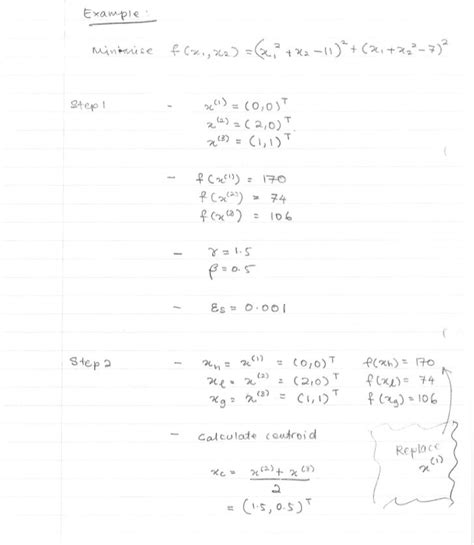 Example:
Minimise f(x₁,x₂) = (x₁² + x₂ - 11)² + (x₁ + x₂² - 7)²
Step 1 - x⁽¹⁾ = (0,0)ᵀ
x⁽²⁾ = (2,0)ᵀ
x⁽³⁾ = (1,1)ᵀ
- f(x⁽¹⁾) = 170
f(x⁽²⁾) = 74
f(x⁽³⁾) = 106
- γ = 1.5
β = 0.5
- εs = 0.001
Step 2 - xₕ = x⁽¹⁾ = (0,0)ᵀ f(xₕ) = 170
xℓ = x⁽²⁾ = (2,0)ᵀ f(xℓ) = 74
xg = x⁽³⁾ = (1,1)ᵀ f(xg) = 106
- Calculate centroid
Replace
x⁽¹⁾
xc = x⁽²⁾ + x⁽³⁾
2
= (1.5, 0.5)ᵀ